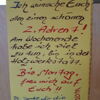 Ich wünsche Euch
allen einen schönen
2. Advent!
Am Wochenende
habe ich viel
zu tun in der
Holzwerkstatt.
Bis Montag,
ich
Euch!